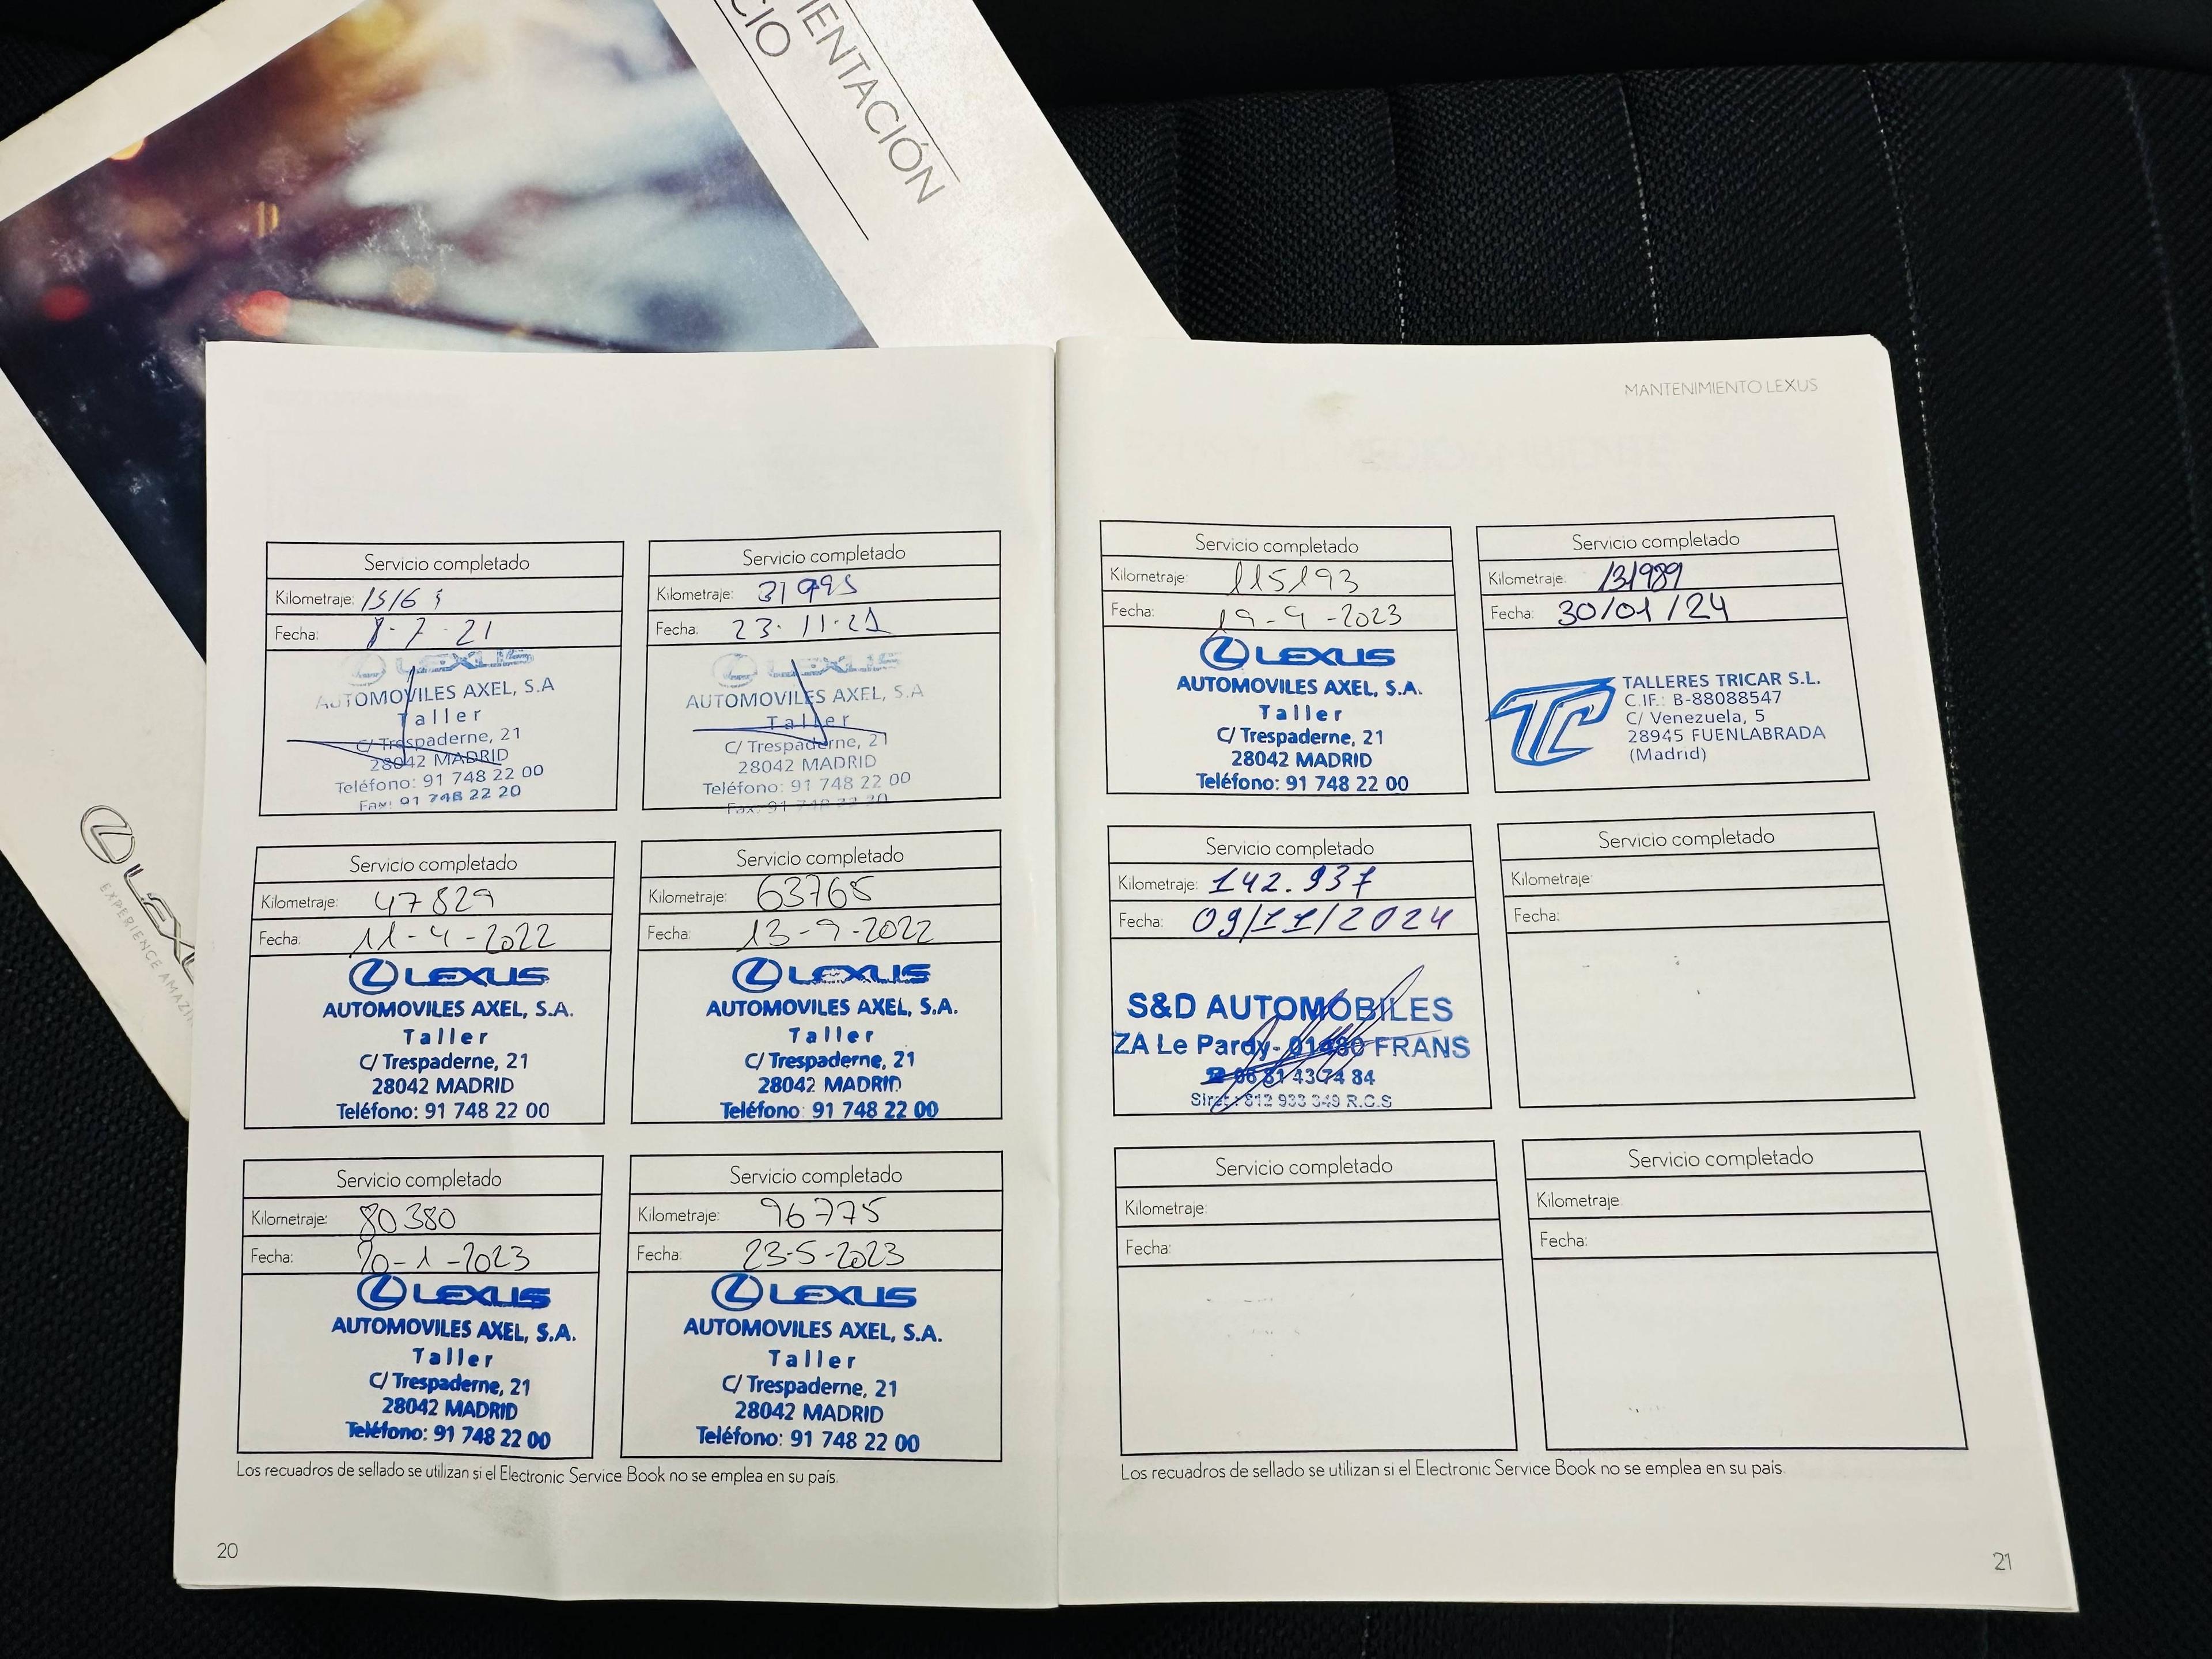 MENTACIÓN
CIO
LEXUS
EXPERIENCE AMAZIN
Servicio completado
Kilometraje:
Fecha: 8-7-21
LEXUS
AUTOMOVILES AXEL, S.A
Taller
C/ Trespaderne, 21
28042 MADRID
Teléfono: 91 748 22 00
Fax: 91 748 22 20
Servicio completado
Kilometraje: 31995
Fecha: 23-11-21
LEXUS
AUTOMOVILES AXEL, S.A
Taller
C/ Trespaderne, 21
28042 MADRID
Teléfono: 91 748 22 00
Fax: 91 748 22 20
Servicio completado
Kilometraje: 47829
Fecha: 11-4-2022
LEXUS
AUTOMOVILES AXEL, S.A.
Taller
C/ Trespaderne, 21
28042 MADRID
Teléfono: 91 748 22 00
Servicio completado
Kilometraje: 63765
Fecha: 13-9-2022
LEXUS
AUTOMOVILES AXEL, S.A.
Taller
C/ Trespaderne, 21
28042 MADRID
Teléfono: 91 748 22 00
Servicio completado
Kilometraje: 80380
Fecha: 20-1-2023
LEXUS
AUTOMOVILES AXEL, S.A.
Taller
C/ Trespaderne, 21
28042 MADRID
Teléfono: 91 748 22 00
Servicio completado
Kilometraje: 96775
Fecha: 23-5-2023
LEXUS
AUTOMOVILES AXEL, S.A.
Taller
C/ Trespaderne, 21
28042 MADRID
Teléfono: 91 748 22 00
Los recuadros de sellado se utilizan si el Electronic Service Book no se emplea en su país.
20
MANTENIMIENTO LEXUS
Servicio completado
Kilometraje: 115193
Fecha: 19-9-2023
LEXUS
AUTOMOVILES AXEL, S.A.
Taller
C/ Trespaderne, 21
28042 MADRID
Teléfono: 91 748 22 00
Servicio completado
Kilometraje: 131989
Fecha: 30/01/24
TC
TALLERES TRICAR S.L.
C.I.F.: B-88088547
C/ Venezuela, 5
28945 FUENLABRADA
(Madrid)
Servicio completado
Kilometraje: 142.937
Fecha: 09/11/2024
S&D AUTOMOBILES
ZA Le Pardy- 01480 FRANS
☎ 06 81 43 74 84
Siret : 812 933 349 R.C.S
Servicio completado
Kilometraje:
Fecha:
Servicio completado
Kilometraje:
Fecha:
Servicio completado
Kilometraje:
Fecha:
Los recuadros de sellado se utilizan si el Electronic Service Book no se emplea en su país.
21